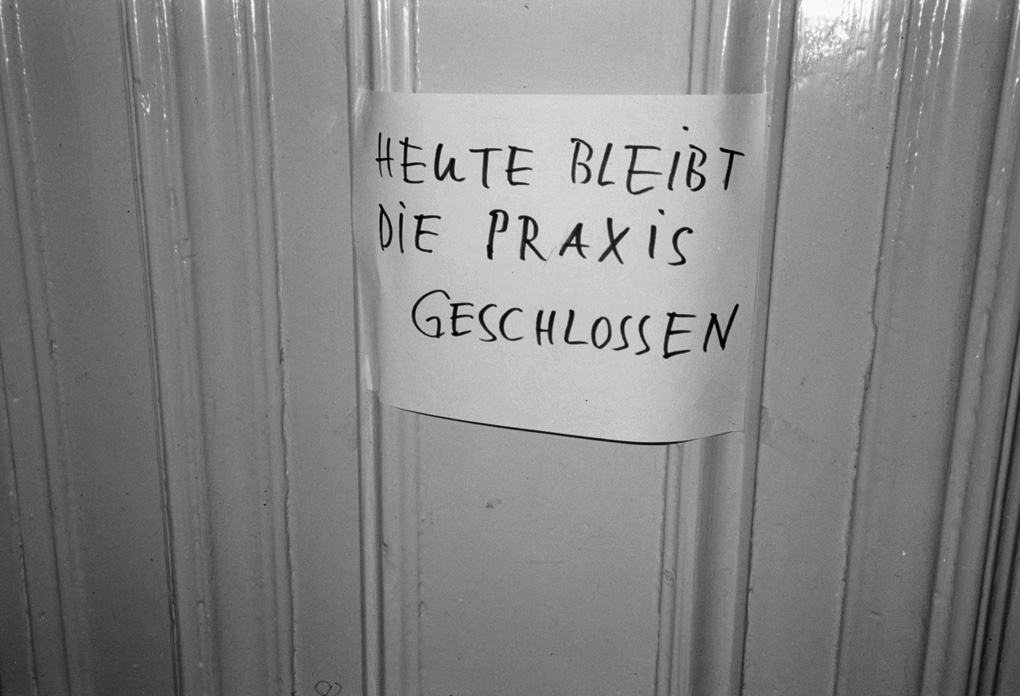 HEUTE BLEIBT
DIE PRAXIS
GESCHLOSSEN